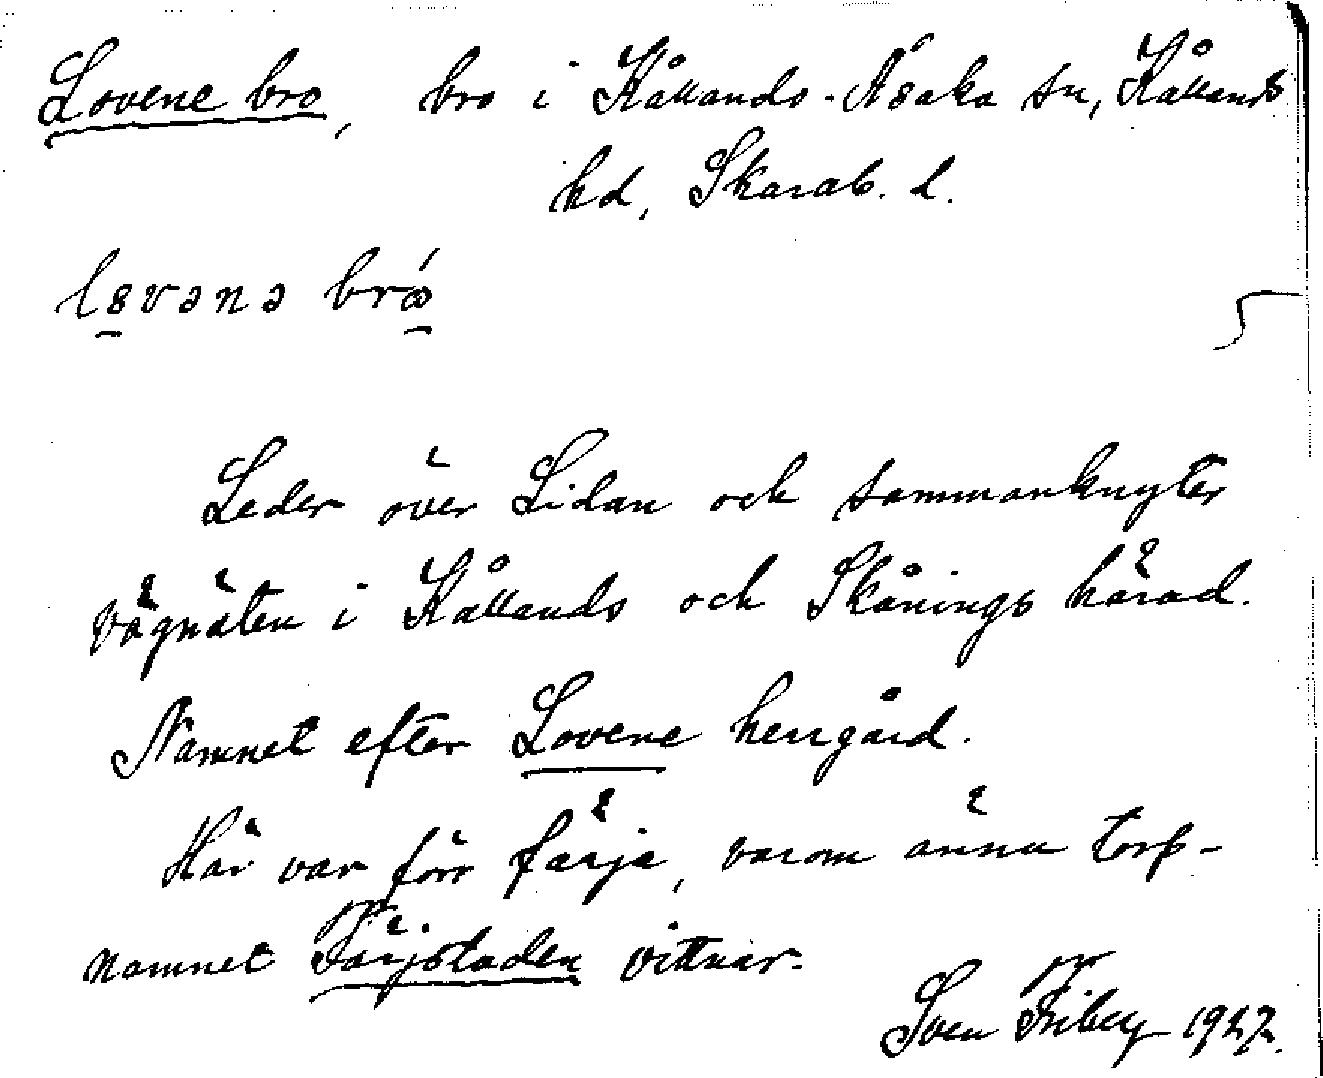 Lovene bro, bro i Kållands-Åsaka sn, Kållands
hd, Skarab. l.
Leder över Lidan och sammanknyter
vägnäten i Kållands och Skånings härad.
Namnet efter Lovene herrgård.
Här var förr färja, varom ännu torp-
namnet Färjstaden vittnar.
Sven Friberg 1927.